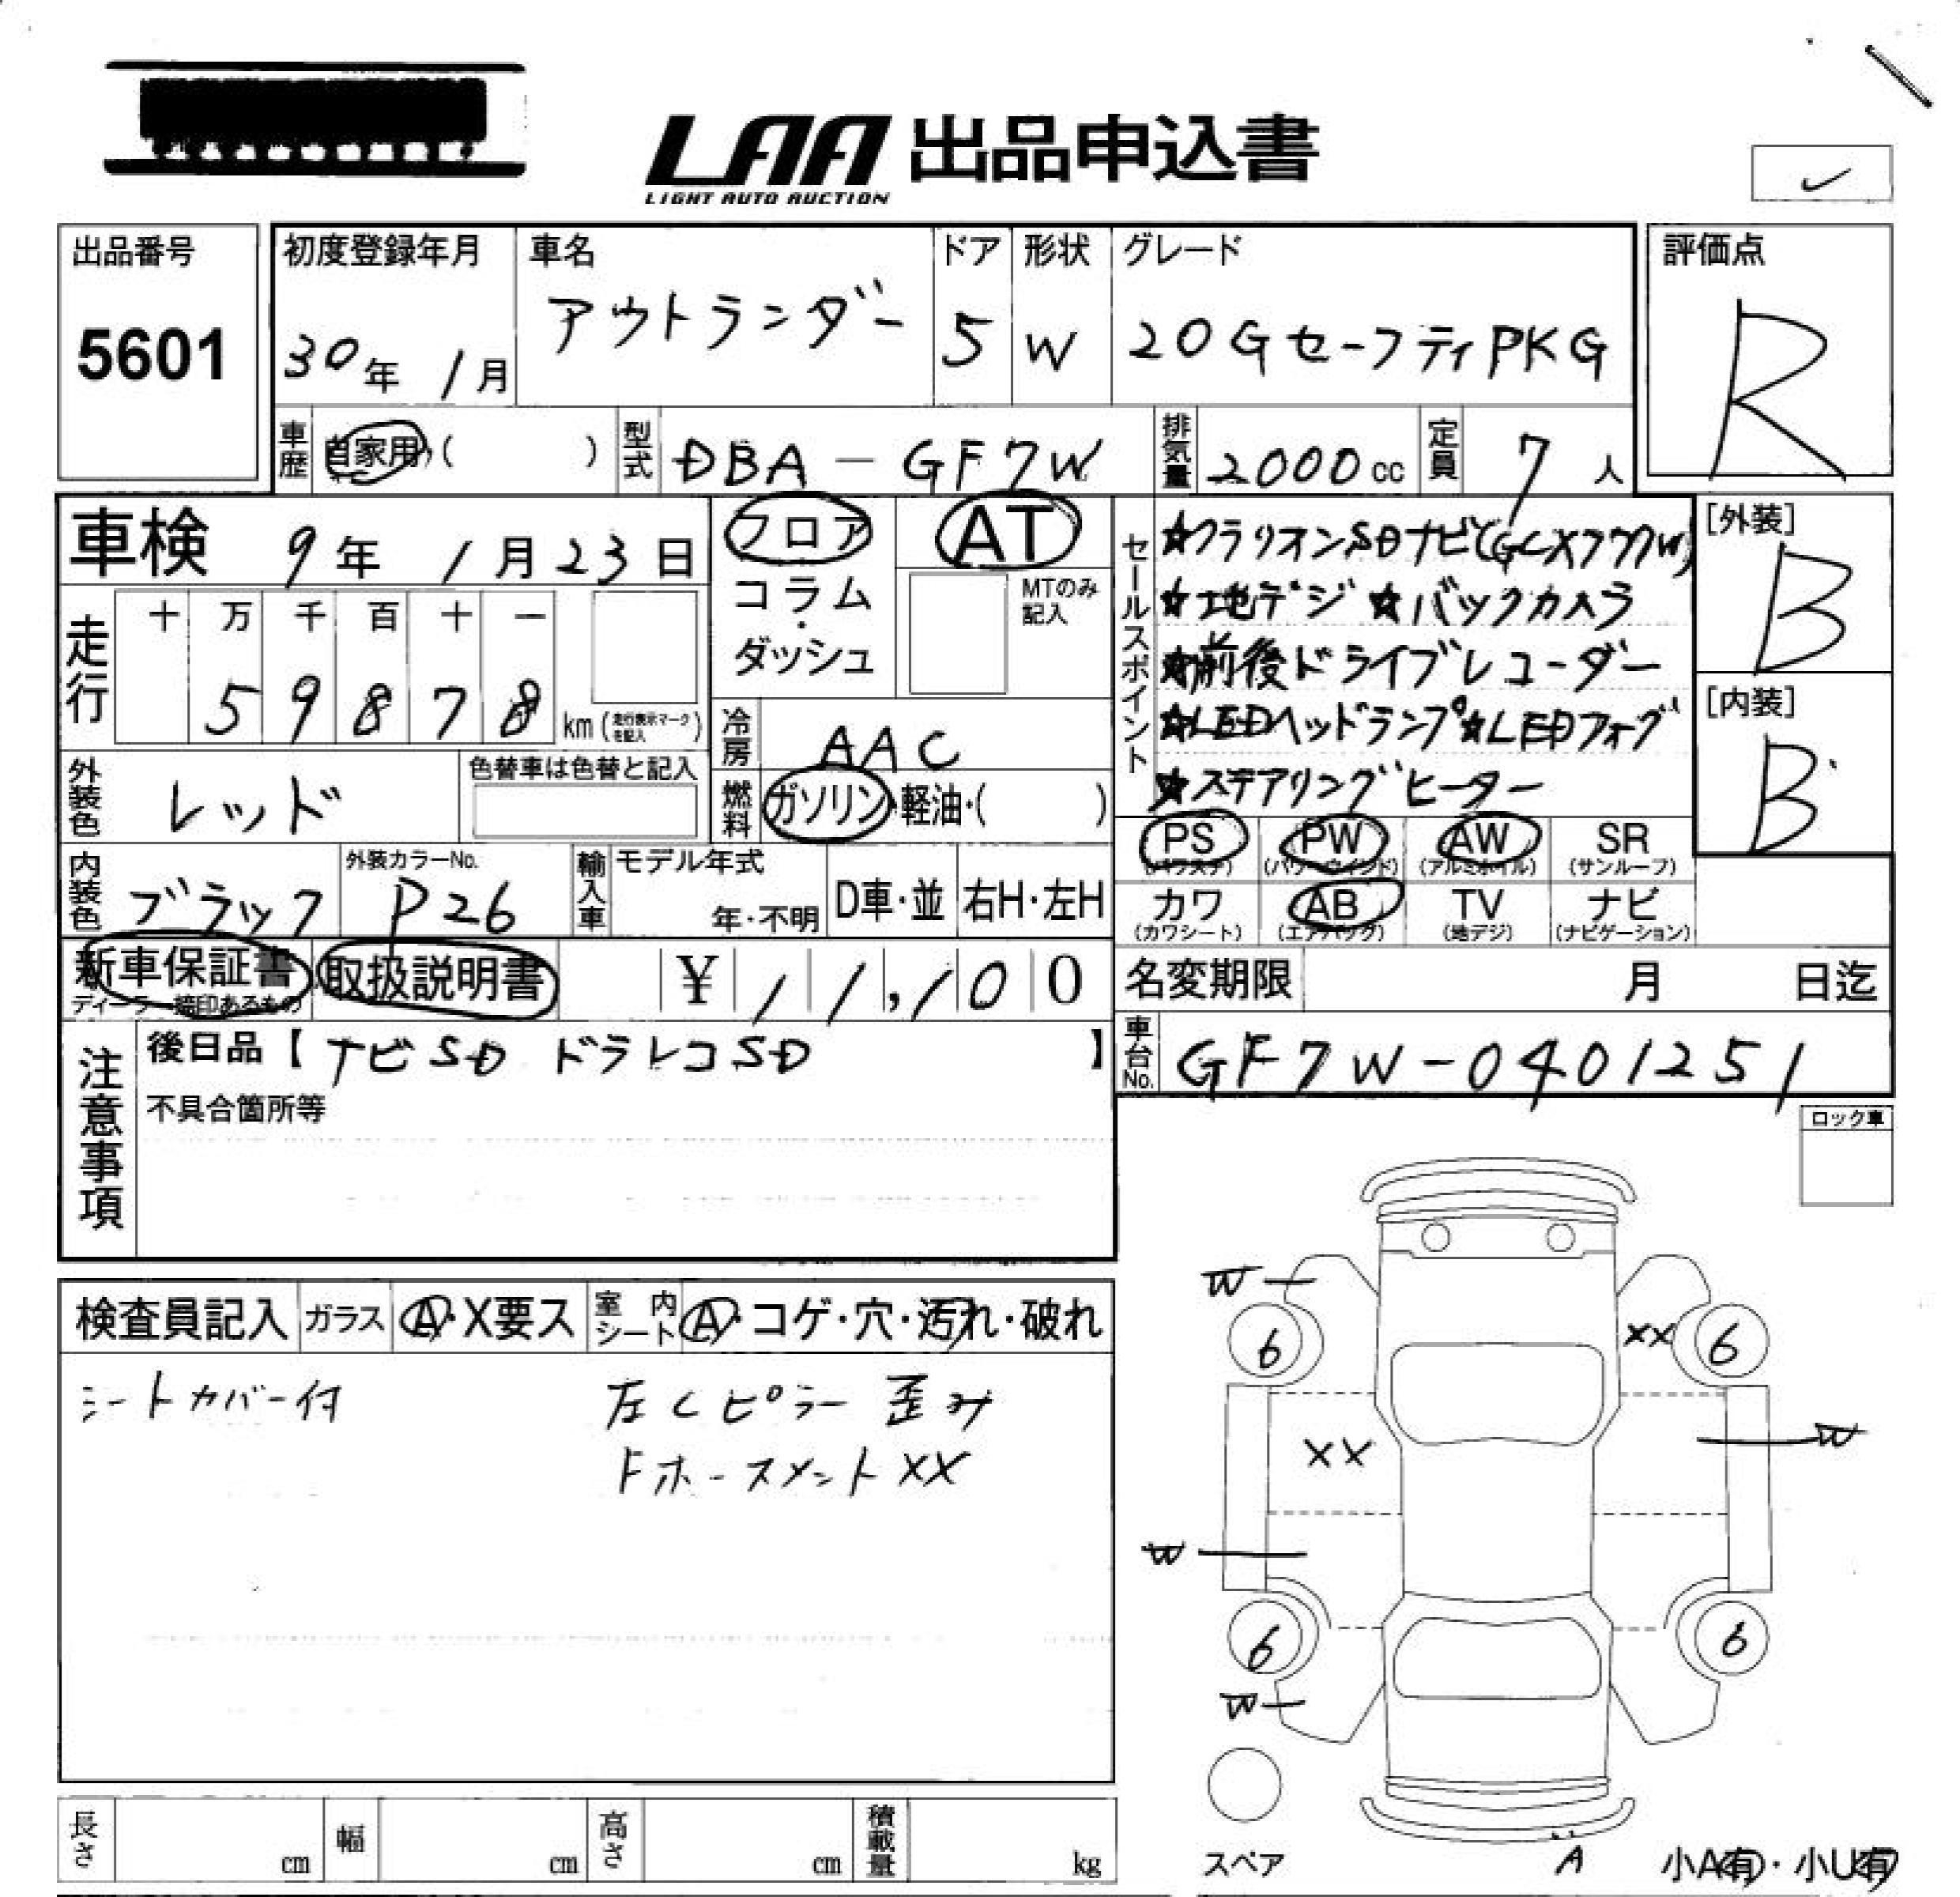 LAA 出品申込書
LIGHT AUTO AUCTION
出品番号 初度登録年月 車名 ドア 形状 グレード 評価点
5601 30年 1月 アウトランダー 5 W 20GセーフティPKG R
車歴 自家用 ( ) 型式 DBA-GF7W 排気量 2000cc 定員 7人
車検 9年 1月23日 フロア AT
コラム・ダッシュ MTのみ記入
走行 十 万 千 百 十 一
5 9 8 7 8 km (走行表示マークを記入)
冷房 AAC
セールスポイント
★クラリオンSDナビ(GCX777W)
★地デジ ★バックカメラ
★前後ドライブレコーダー
★LEDヘッドランプ★LEDフォグ
★ステアリングヒーター
[外装]
B
[内装]
B
外装色 レッド 色替車は色替と記入 燃料 ガソリン・軽油・( )
PS PW AW SR
(パワステ) (パワーウインド) (アルミホイル) (サンルーフ)
内装色 ブラック 外装カラーNo. P26 輸入車 モデル年式 年・不明 D車・並 右H・左H
カワ AB TV ナビ
(カワシート) (エアバック) (地デジ) (ナビゲーション)
新車保証書 取扱説明書 ¥11,100
ディーラー捺印あるもの
名変期限 月 日迄
車台No. GF7W-0401251
注意事項
後日品【ナビSD ドラレコSD 】
不具合箇所等
ロック車
検査員記入 ガラス A・X要ス 室内シート A・コゲ・穴・汚れ・破れ
シートカバー付 左Cピラー歪み
Fホースメント XX
W
6 XX 6
XX W
W
6 6
W
スペア A 小A有・小U有
長さ cm 幅 cm 高さ cm 積載量 kg